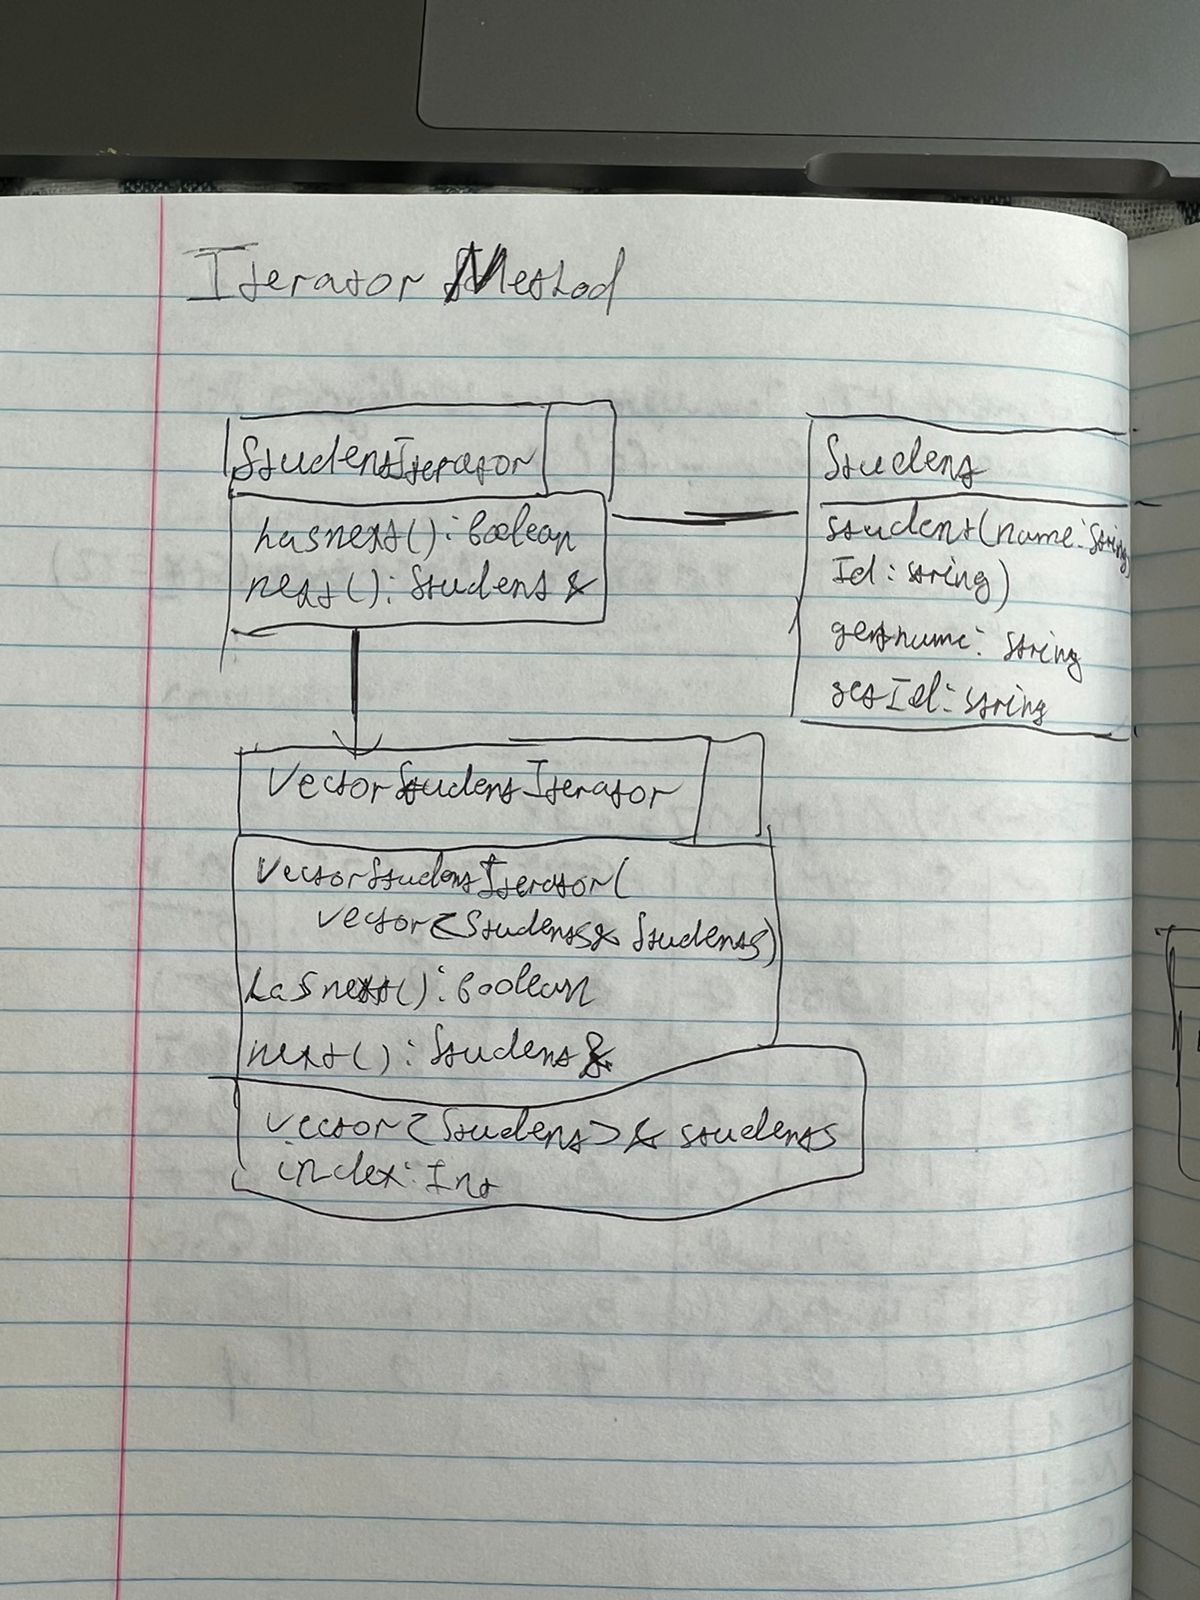 Iterator Method
StudentIterator
hasnext(): boolean
next(): Student &
Student
student(name: String,
Id: string)
getname: string
getId: string
VectorStudentIterator
VectorStudentIterator(
vector<Students& Students)
hasnext(): boolean
next(): Student &
vector<Student>& students
index: Int